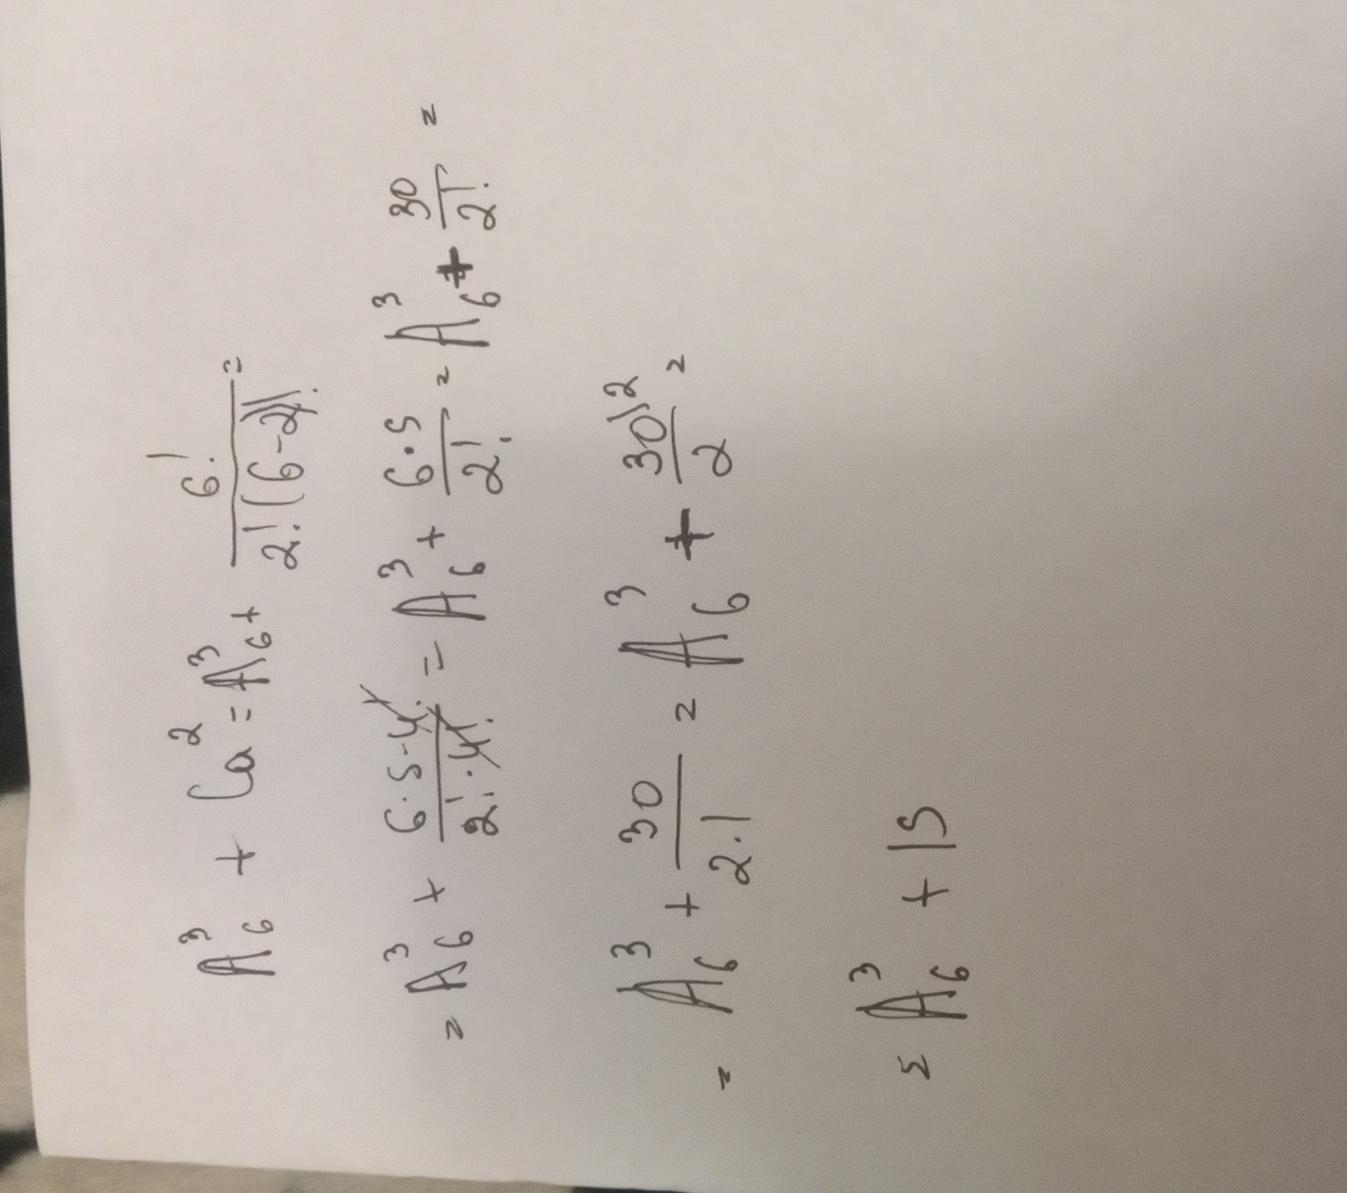 A₆³ + Ca² = A₆³ + 6! / 2!(6-2)! =
= A₆³ + 6·5·4! / 2!·4! = A₆³ + 6·5 / 2! = A₆³ + 30 / 2! =
= A₆³ + 30 / 2·1 = A₆³ + 30|2 / 2 =
= A₆³ + 15